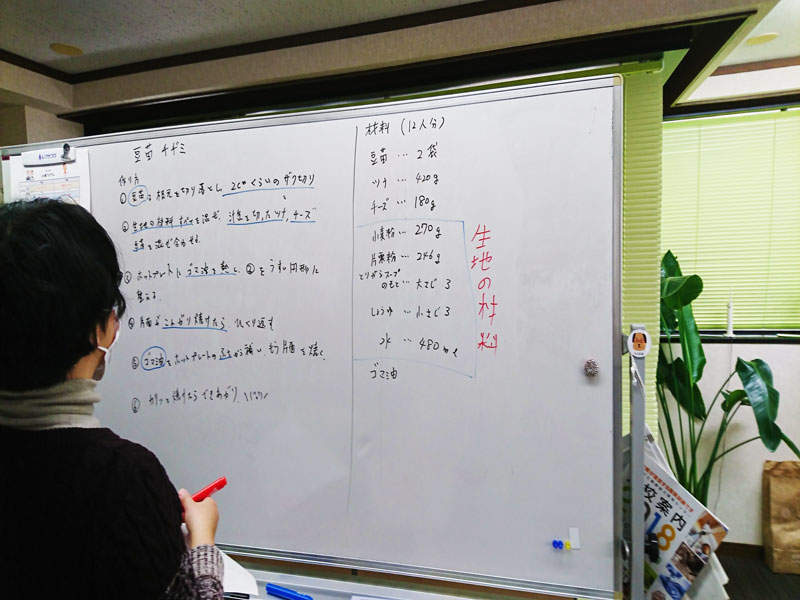 豆苗 チヂミ
作り方
① 豆苗は根元を切り落とし、2cmくらいのザク切り
② 生地の材料すべてを混ぜ、汁気を切ったツナ、チーズ
豆苗を混ぜ合わせる。
③ ホットプレートにゴマ油を熱し、②をうすく円形に
④ 片面がこんがり焼けたら ひっくり返す
⑤ ゴマ油をホットプレートの
⑥ カリッと焼けたらできあがり。
材料 (12人分)
豆苗 … 2袋
ツナ … 420g
チーズ … 180g
小麦粉 … 270g
片栗粉 … 246g
とりがらスープ
のもと … 大さじ 3
しょうゆ … 小さじ 3
水 … 480ml
ゴマ油
生地の材料
校案内
018